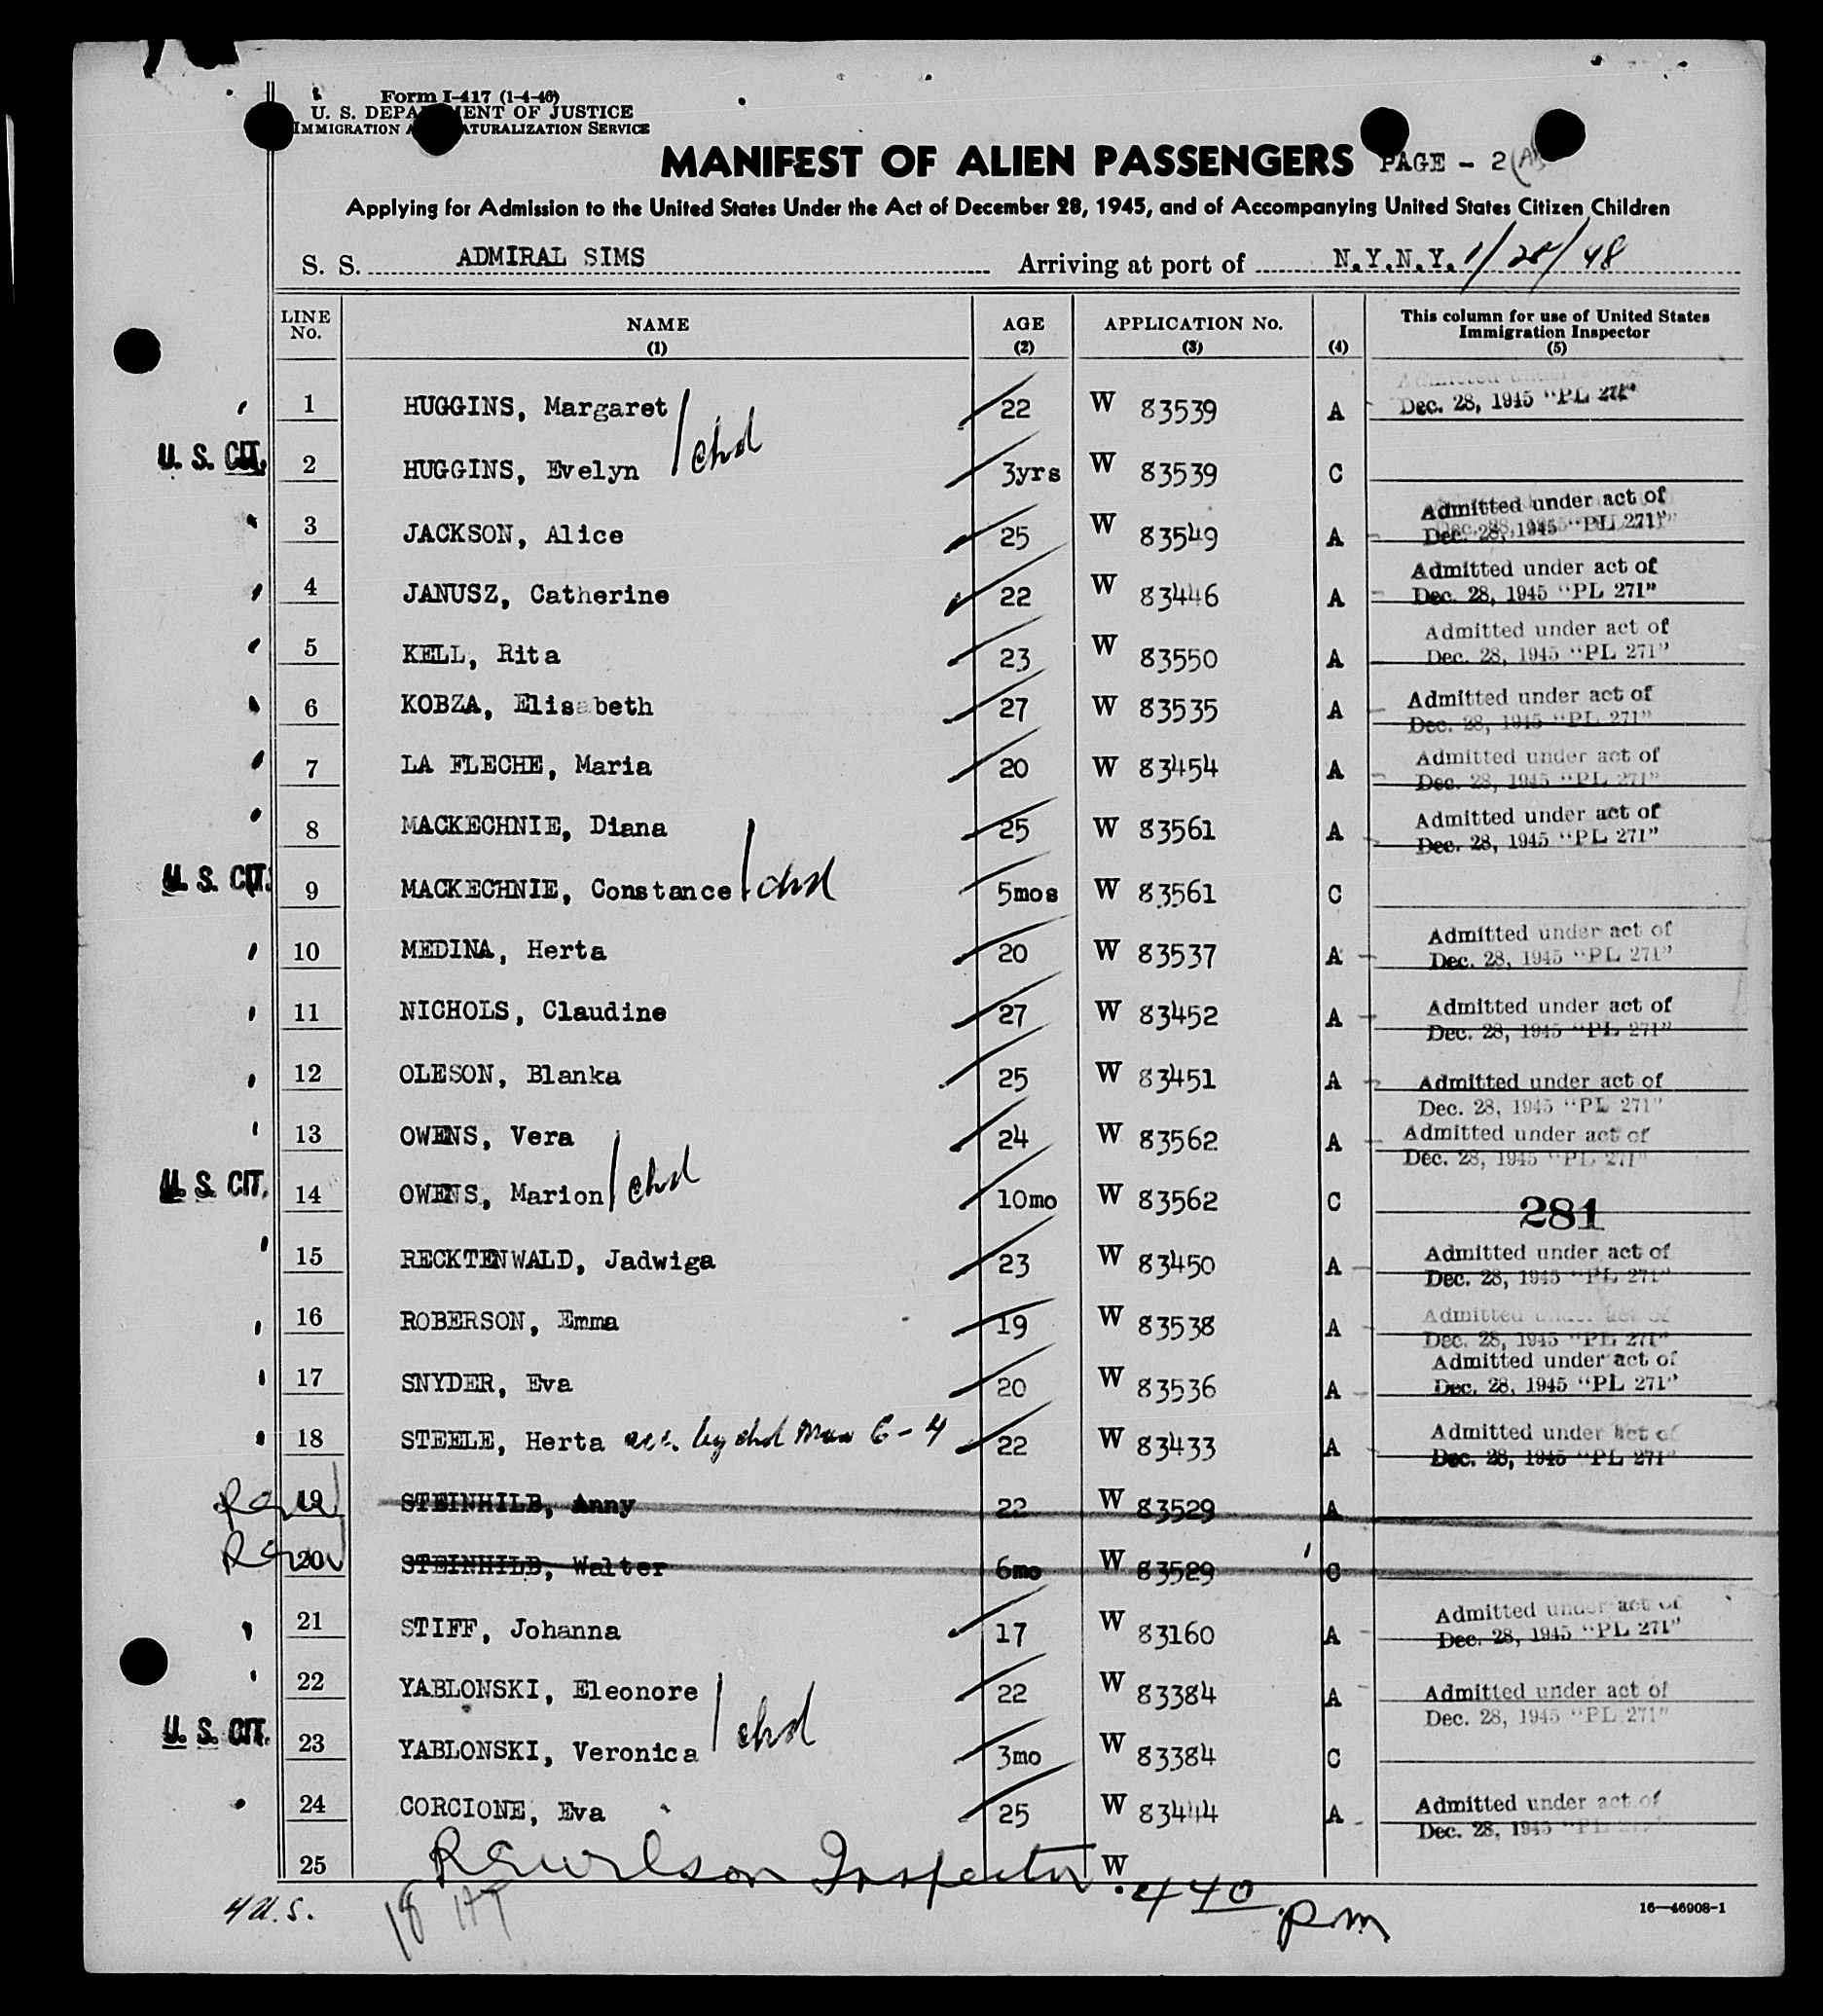 Form I-417 (1-4-46)
U. S. DEPARTMENT OF JUSTICE
IMMIGRATION AND NATURALIZATION SERVICE
MANIFEST OF ALIEN PASSENGERS PAGE - 2 (A)
Applying for Admission to the United States Under the Act of December 28, 1945, and of Accompanying United States Citizen Children
S. S. ADMIRAL SIMS Arriving at port of N.Y.N.Y. 1/28/48
LINE No. NAME (1) AGE (2) APPLICATION No. (3) (4) This column for use of United States Immigration Inspector (5)
1 HUGGINS, Margaret 22 W 83539 A Admitted under Dec. 28, 1945 "PL 271"
U. S. CIT. 2 HUGGINS, Evelyn chd 3yrs W 83539 C
3 JACKSON, Alice 25 W 83549 A Admitted under act of Dec. 28, 1945 "PL 271"
4 JANUSZ, Catherine 22 W 83446 A Admitted under act of Dec. 28, 1945 "PL 271"
5 KELL, Rita 23 W 83550 A Admitted under act of Dec. 28, 1945 "PL 271"
6 KOBZA, Elisabeth 27 W 83535 A Admitted under act of Dec. 28, 1945 "PL 271"
7 LA FLECHE, Maria 20 W 83454 A Admitted under act of Dec. 28, 1945 "PL 271"
8 MACKECHNIE, Diana 25 W 83561 A Admitted under act of Dec. 28, 1945 "PL 271"
U. S. CIT. 9 MACKECHNIE, Constance chd 5mos W 83561 C
10 MEDINA, Herta 20 W 83537 A Admitted under act of Dec. 28, 1945 "PL 271"
11 NICHOLS, Claudine 27 W 83452 A Admitted under act of Dec. 28, 1945 "PL 271"
12 OLESON, Blanka 25 W 83451 A Admitted under act of Dec. 28, 1945 "PL 271"
13 OWENS, Vera 24 W 83562 A Admitted under act of Dec. 28, 1945 "PL 271"
U. S. CIT. 14 OWENS, Marion chd 10mo W 83562 C 281
15 RECKTENWALD, Jadwiga 23 W 83450 A Admitted under act of Dec. 28, 1945 "PL 271"
16 ROBERSON, Emma 19 W 83538 A Admitted under act of Dec. 28, 1945 "PL 271"
17 SNYDER, Eva 20 W 83536 A Admitted under act of Dec. 28, 1945 "PL 271"
18 STEELE, Herta acc. by chd Man 6-4 22 W 83433 A Admitted under act of Dec. 28, 1945 "PL 271"
REW 19 STEINHILB, Anny 22 W 83529 A
REW 20 STEINHILB, Walter 6mo W 83529 C
21 STIFF, Johanna 17 W 83160 A Admitted under act of Dec. 28, 1945 "PL 271"
22 YABLONSKI, Eleonore 22 W 83384 A Admitted under act of Dec. 28, 1945 "PL 271"
U. S. CIT. 23 YABLONSKI, Veronica chd 3mo W 83384 C
24 CORCIONE, Eva 25 W 83444 A Admitted under act of Dec. 28, 1945 "PL 271"
25 REWilson Inspector W
4 U.S. 18 440 pm
16—46908-1